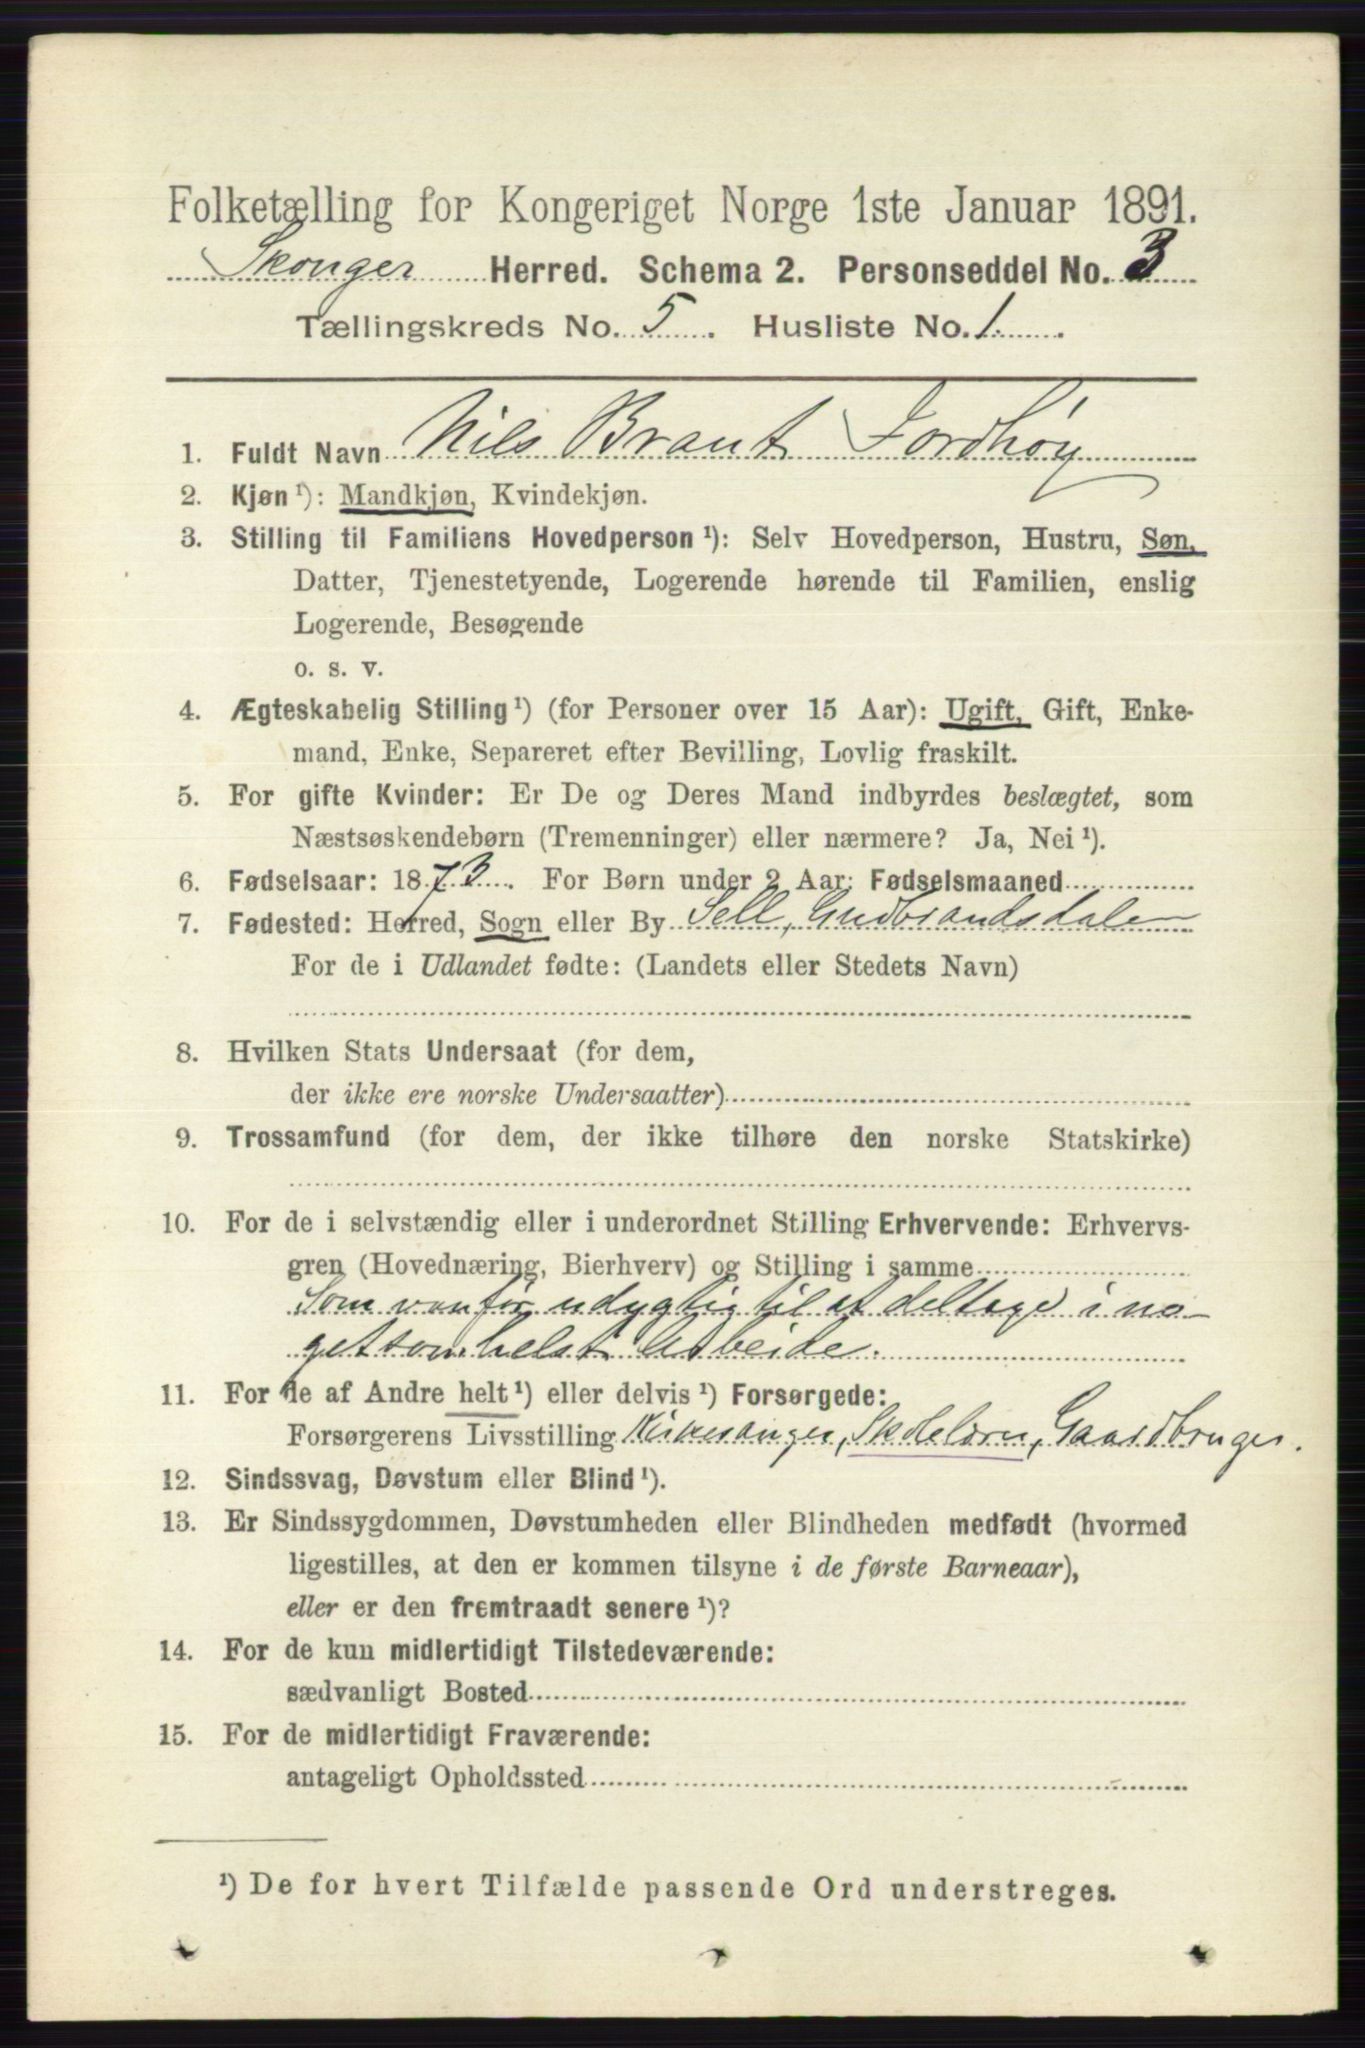 Folketælling for Kongeriget Norge 1ste Januar 1891.
Skouger Herred. Schema 2. Personseddel No. 3
Tællingskreds No. 5. Husliste No. 1.
1. Fuldt Navn Nils Brant Jordhøy
2. Kjøn ¹): Mandkjøn, Kvindekjøn.
3. Stilling til Familiens Hovedperson ¹): Selv Hovedperson, Hustru, Søn,
Datter, Tjenestetyende, Logerende hørende til Familien, enslig
Logerende, Besøgende
o. s. v.
4. Ægteskabelig Stilling ¹) (for Personer over 15 Aar): Ugift, Gift, Enke-
mand, Enke, Separeret efter Bevilling, Lovlig fraskilt.
5. For gifte Kvinder: Er De og Deres Mand indbyrdes beslægtet, som
Næstsøskendebørn (Tremenninger) eller nærmere? Ja, Nei ¹).
6. Fødselsaar: 1873. For Børn under 2 Aar: Fødselsmaaned
7. Fødested: Herred, Sogn eller By Sell, Gudbrandsdalen
For de i Udlandet fødte: (Landets eller Stedets Navn)
8. Hvilken Stats Undersaat (for dem,
der ikke ere norske Undersaatter)
9. Trossamfund (for dem, der ikke tilhøre den norske Statskirke)
10. For de i selvstændig eller i underordnet Stilling Erhvervende: Erhvervs-
gren (Hovednæring, Bierhverv) og Stilling i samme
Som vanfør udygtig til at deltage i no-
getsomhelst Arbeide.
11. For de af Andre helt ¹) eller delvis ¹) Forsørgede:
Forsørgerens Livsstilling Kirkesanger, Skolelærer, Gaardbruger.
12. Sindssvag, Døvstum eller Blind ¹).
13. Er Sindssygdommen, Døvstumheden eller Blindheden medfødt (hvormed
ligestilles, at den er kommen tilsyne i de første Barneaar),
eller er den fremtraadt senere ¹)?
14. For de kun midlertidigt Tilstedeværende:
sædvanligt Bosted
15. For de midlertidigt Fraværende:
antageligt Opholdssted
¹) De for hvert Tilfælde passende Ord understreges.